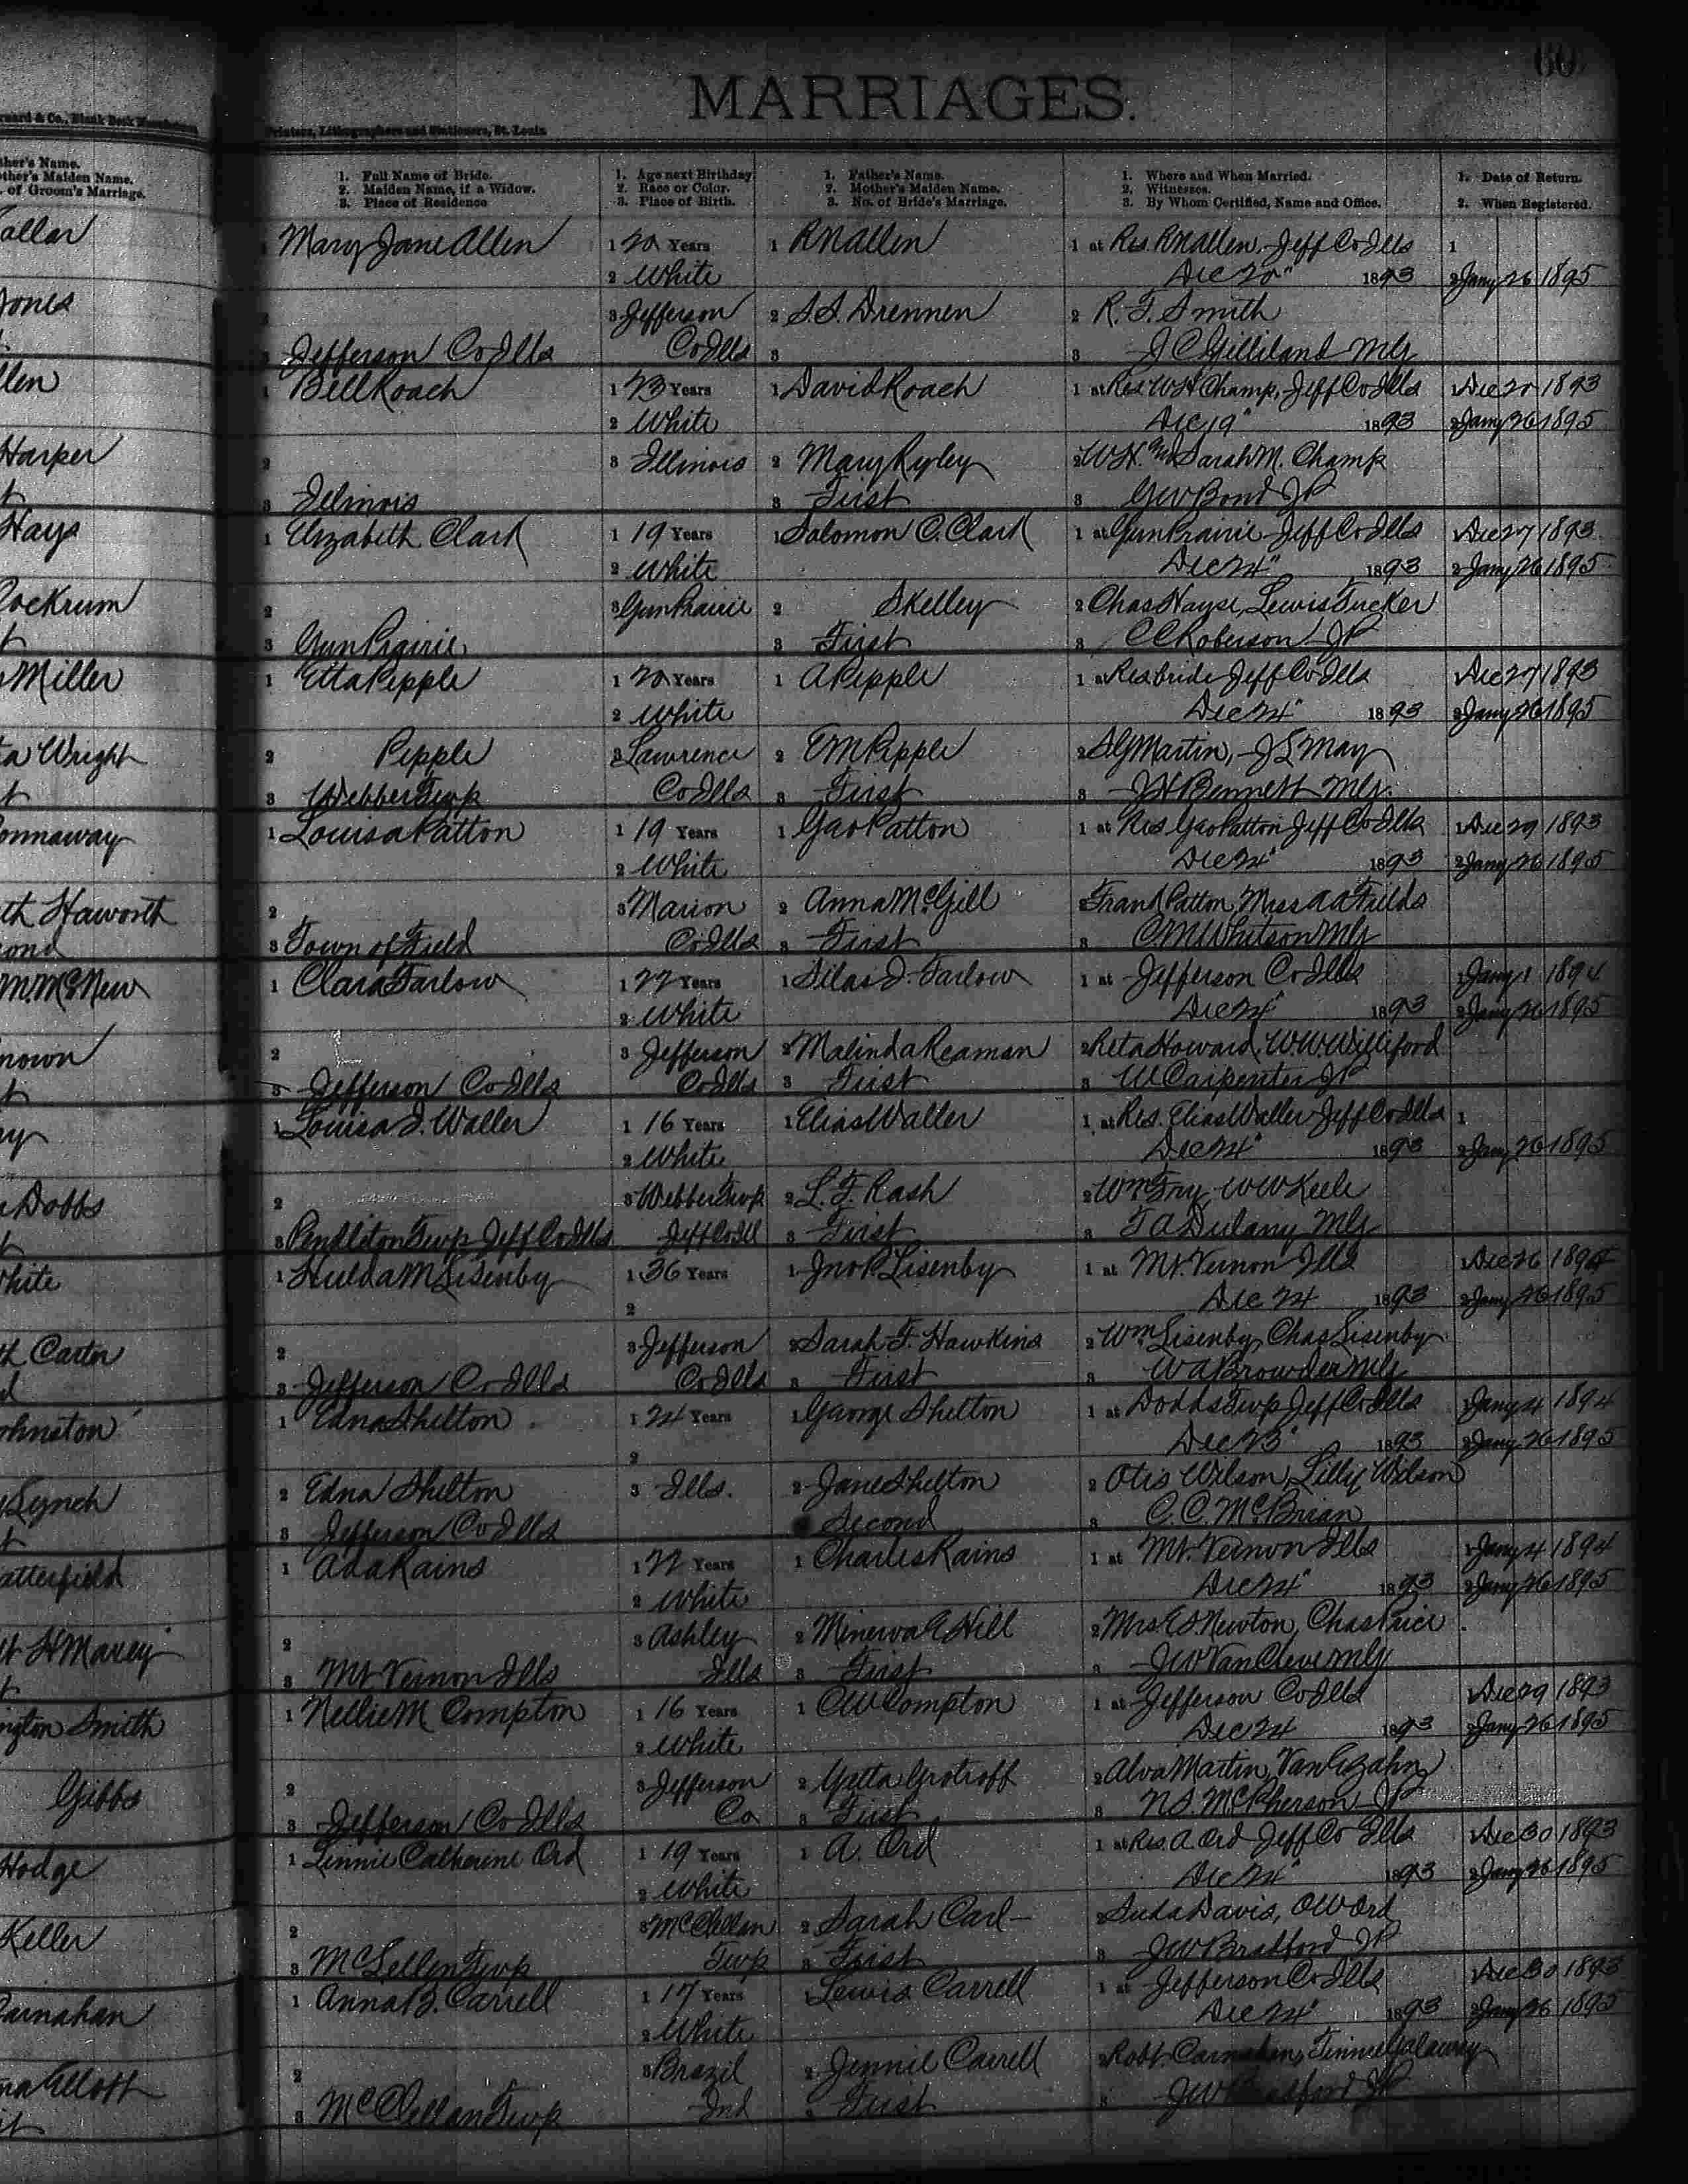 60
MARRIAGES.
Printers, Lithographers and Stationers, St. Louis.
1. Full Name of Bride.
2. Maiden Name, if a Widow.
3. Place of Residence
1. Age next Birthday
2. Race or Color.
3. Place of Birth.
1. Father's Name.
2. Mother's Maiden Name.
3. No. of Bride's Marriage.
1. Where and When Married.
2. Witnesses.
3. By Whom Certified, Name and Office.
1. Date of Return.
2. When Registered.
1 Mary Jane Allen 1 20 Years 1 R N Allen 1 at Res. R N Allen, Jeff Co Ills 1
2 White Dec 20" 1893 2 Jany 26 1895
2 3 Jefferson 2 S. S. Drennen 2 R. F. Smith
3 Jefferson Co Ills Co Ills 3 3 J C Gilliland Mg
1 Bell Roach 1 23 Years 1 David Roach 1 at Res W H Champ, Jeff Co Ills 1 Dec 20 1893
2 White Dec 19" 1893 2 Jany 26 1895
2 3 Illinois 2 Mary Ryley 2 W H. and Sarah M. Champ
3 Illinois 3 First 3 G W Bond J P
1 Elizabeth Clark 1 19 Years 1 Salomon C. Clark 1 at Gun Prairie Jeff Co Ills 1 Dec 27 1893
2 White Dec 24" 1893 2 Jany 26 1895
2 3 Gun Prairie 2 Skelley 2 Chas Hayse, Lewis Tucker
3 Gun Prairie 3 First 3 C C Roberson J P
1 Etta Pepple 1 20 Years 1 A Pepple 1 at Res bride Jeff Co Ills 1 Dec 27 1893
2 White Dec 24" 1893 2 Jany 26 1895
2 Pepple 3 Lawrence 2 E M Pepple 2 S G Martin, J L May
3 Webber Twp Co Ills 3 First 3 J H Bennett Mg.
1 Louisa Patton 1 19 Years 1 Geo Patton 1 at Res Geo Patton Jeff Co Ills 1 Dec 29 1893
2 White Dec 24" 1893 2 Jany 26 1895
2 3 Marion 2 Anna McGill 2 Frank Patton, Miss A A Fields
3 Town of Field Co Ills 3 First 3 C. M Whitson Mg
1 Clara Farlow 1 22 Years 1 Silas J. Farlow 1 at Jefferson Co Ills 1 Jany 1 1894
2 White Dec 24" 1893 2 Jany 26 1895
2 3 Jefferson 2 Malinda Reaman 2 Reta Howard, W. W Williford
3 Jefferson Co Ills Co Ills 3 First 3 W Carpenter J P
1 Louisa J. Waller 1 16 Years 1 Elias Waller 1 at Res. Elias Waller Jeff Co Ills 1
2 White Dec 24" 1893 2 Jany 26 1895
2 3 Webber Twp 2 L. F. Rash 2 Wm Fry, W W Keele
3 Pendleton Twp Jeff Co Ills Jeff Co Ill 3 First 3 T A Dulany Mg
1 Hulda M Lisenby 1 36 Years 1 Jno P Lisenby 1 at Mt. Vernon Ills 1 Dec 26 1894
2 Dec 24 1893 2 Jany 26 1895
2 3 Jefferson 2 Sarah F. Hawkins 2 Wm Lisenby, Chas Lisenby
3 Jefferson Co Ills Co Ills 3 First 3 W A Browder Mg
1 Edna Shelton 1 24 Years 1 George Shelton 1 at Dodds Twp Jeff Co Ills 1 Jany 4 1894
2 Dec 23" 1893 2 Jany 26 1895
2 Edna Shelton 3 Ills. 2 Jane Shelton 2 Otis Wilson, Lilly Wilson
3 Jefferson Co Ills Second 3 C. C. McBrian
1 Ada Rains 1 22 Years 1 Charles Rains 1 at Mt. Vernon Ills 1 Jany 4 1894
2 White Dec 24" 1893 2 Jany 26 1895
2 3 Ashley 2 Minerva E Hill 2 Mrs E S Newton, Chas Price
3 Mt Vernon Ills Ills 3 First 3 J W Van Cleve Mg
1 Nellie M Compton 1 16 Years 1 C W Compton 1 at Jefferson Co Ills 1 Dec 29 1893
2 White Dec 24 1893 2 Jany 26 1895
2 3 Jefferson 2 Yetta Grotroff 2 Alva Martin,
3 Jefferson Co Ills Co 3 First 3 N S. McPherson J P
1 Catherine Ord 1 19 Years 1 A. Ord 1 at Res. A. Ord Jeff Co Ills 1 Dec 30 1893
2 White Dec 24" 1893 2 Jany 26 1895
2 3 McClellan 2 Sarah Carl- 2 Davis, O W Ord
3 McLellen Twp Twp 3 First 3 J W Bradford J P
1 Anna B. Carrell 1 17 Years 1 Lewis Carrell 1 at Jefferson Co Ills 1 Dec 30 1893
2 White Dec 24" 1893 2 Jany 26 1895
2 3 Brazil 2 Jennie Carrell 2 Robt. Carnahan,
3 McClellan Twp Ind 3 First 3 J W Bradford J P